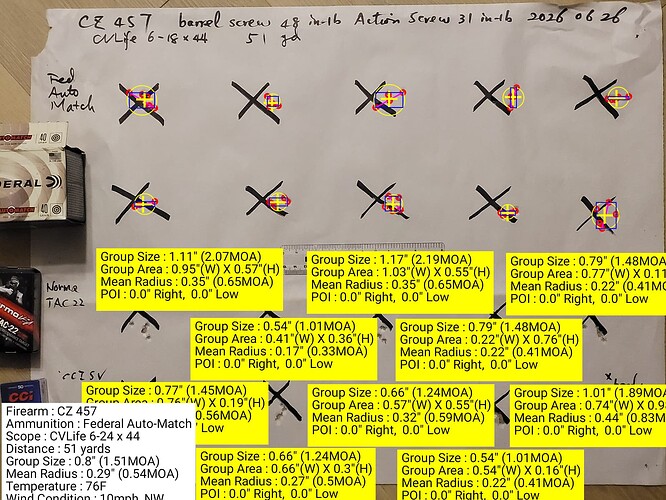 CZ 457 barrel screw 48 in-lb Action Screw 31 in-lb 2026 06 26
CVLife 6-18 x 44 51 yd
Fed
Auto
Match
40
DERAL
40
Group Size : 1.11" (2.07MOA)
Group Area : 0.95"(W) X 0.57"(H)
Mean Radius : 0.35" (0.65MOA)
POI : 0.0" Right, 0.0" Low
Group Size : 1.17" (2.19MOA)
Group Area : 1.03"(W) X 0.55"(H)
Mean Radius : 0.35" (0.65MOA)
POI : 0.0" Right, 0.0" Low
Group Size : 0.79" (1.48MOA
Group Area : 0.77"(W) X 0.11
Mean Radius : 0.22" (0.41MO
POI : 0.0" Right, 0.0" Low
Norma
TAC 22
TAC-22
Group Size : 0.54" (1.01MOA)
Group Area : 0.41"(W) X 0.36"(H)
Mean Radius : 0.17" (0.33MOA)
POI : 0.0" Right, 0.0" Low
Group Size : 0.79" (1.48MOA)
Group Area : 0.22"(W) X 0.76"(H)
Mean Radius : 0.22" (0.41MOA)
POI : 0.0" Right, 0.0" Low
CCI SV
CCI
Group Size : 0.77" (1.45MOA)
0.76"(W) X 0.19"(H)
0.56MOA)
0.0" Low
Group Size : 0.66" (1.24MOA)
Group Area : 0.57"(W) X 0.55"(H)
Mean Radius : 0.32" (0.59MOA)
POI : 0.0" Right, 0.0" Low
Group Size : 1.01" (1.89MOA
Group Area : 0.74"(W) X 0.9
Mean Radius : 0.44" (0.83M
POI : 0.0" Right, 0.0" Low
Firearm : CZ 457
Ammunition : Federal Auto-Match
Scope : CVLife 6-24 x 44
Distance : 51 yards
Group Size : 0.8" (1.51MOA)
Mean Radius : 0.29" (0.54MOA)
Temperature : 76F
Wind Condition : 10mph, NW
Group Size : 0.66" (1.24MOA)
Group Area : 0.66"(W) X 0.3"(H)
Mean Radius : 0.27" (0.5MOA)
POI : 0.0" Right, 0.0" Low
Group Size : 0.54" (1.01MOA)
Group Area : 0.54"(W) X 0.16"(H)
Mean Radius : 0.22" (0.41MOA)
POI : 0.0" Right, 0.0" Low